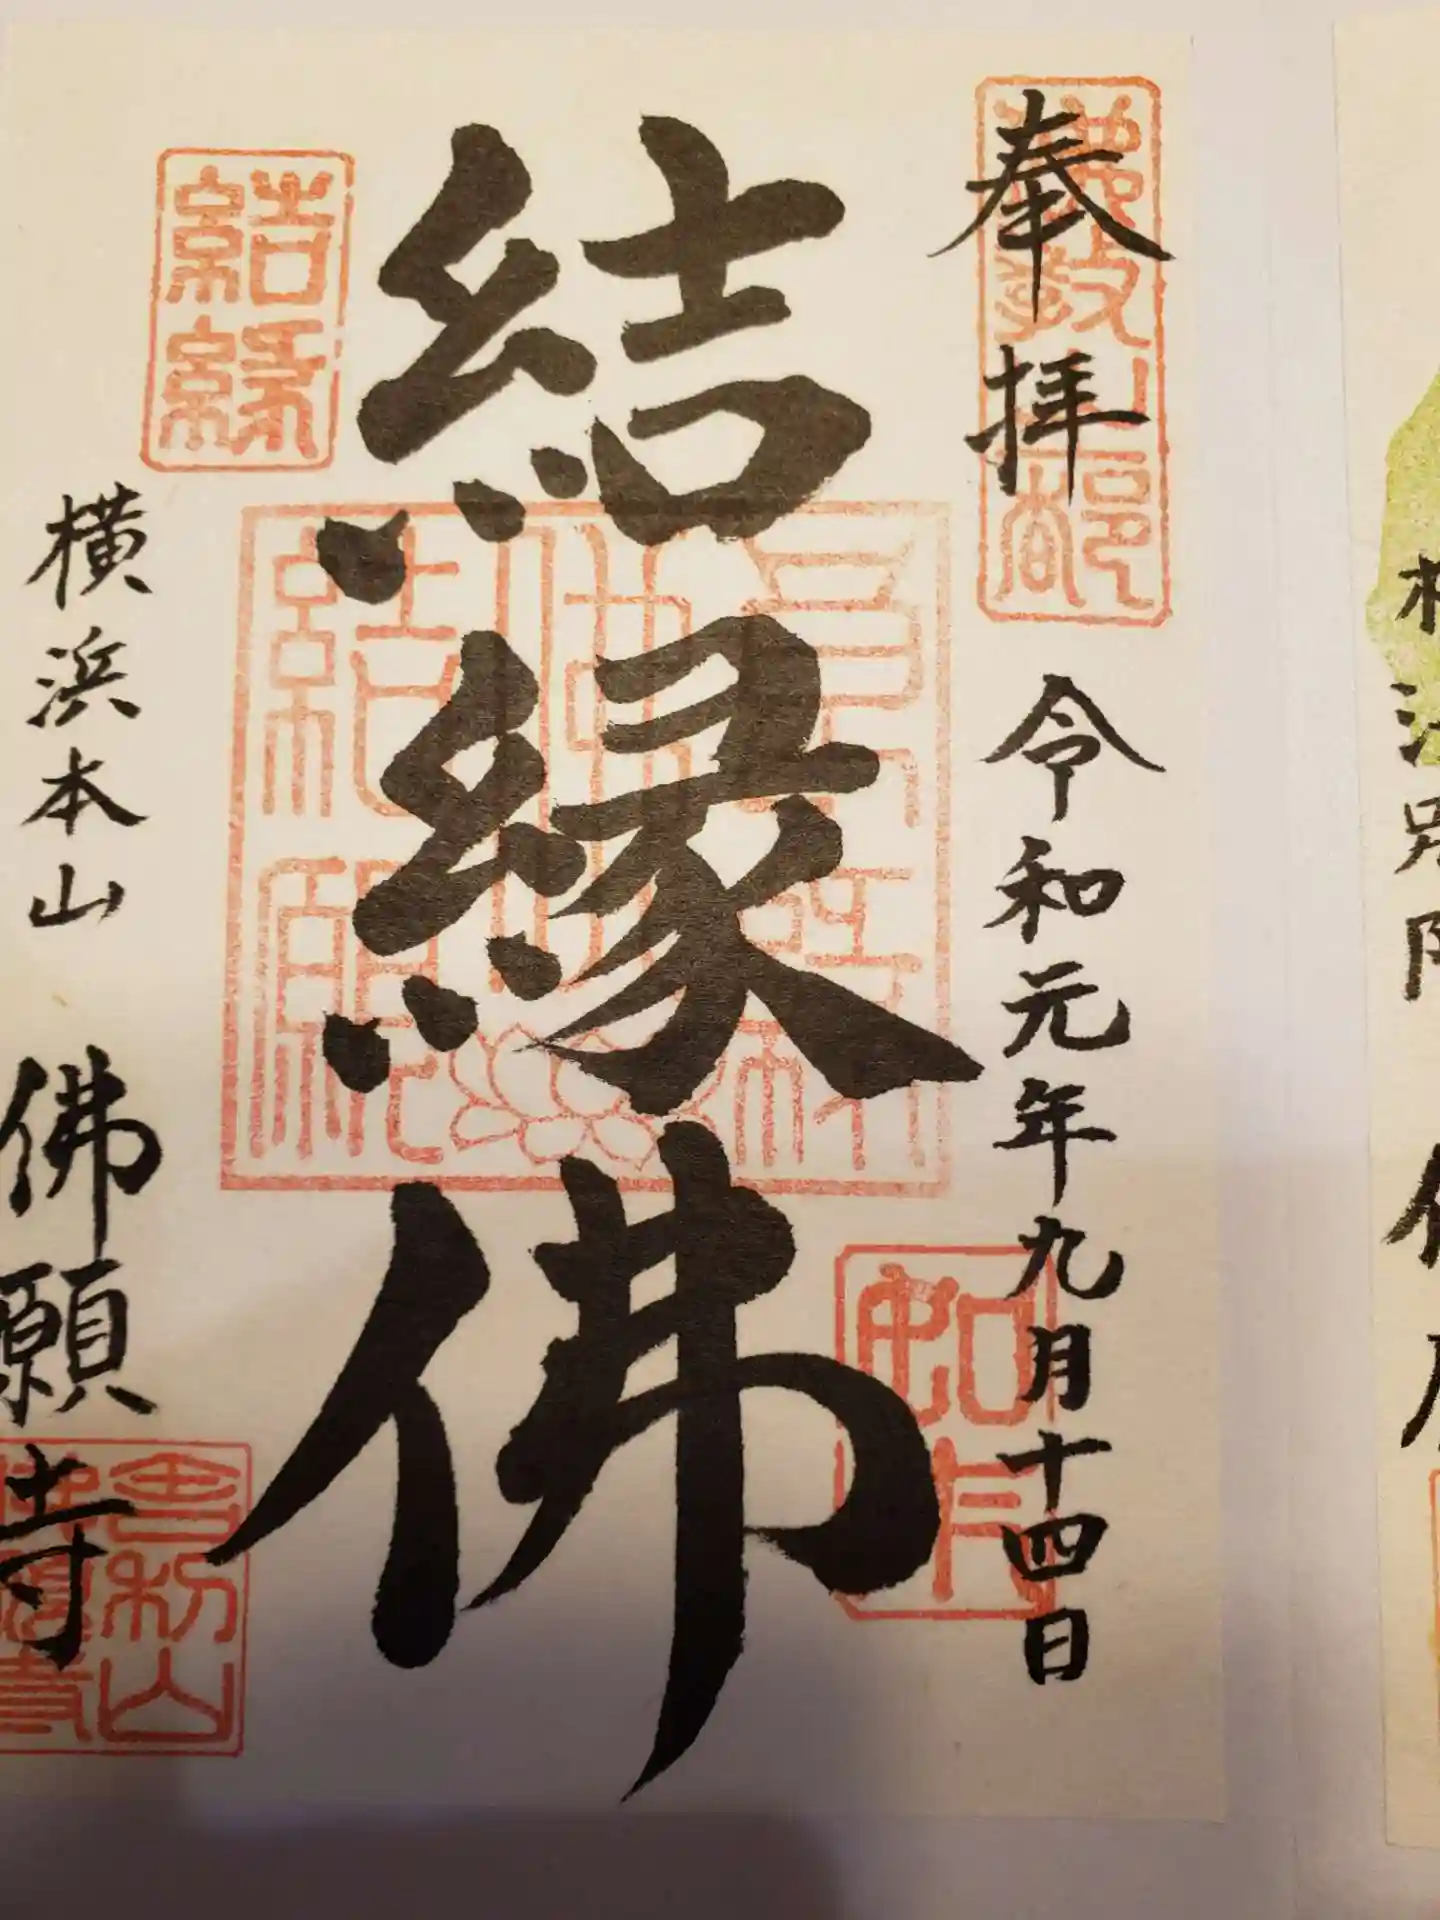 奉拝
令和元年九月十四日
結縁佛
結縁
横浜本山
佛願寺
舎利山